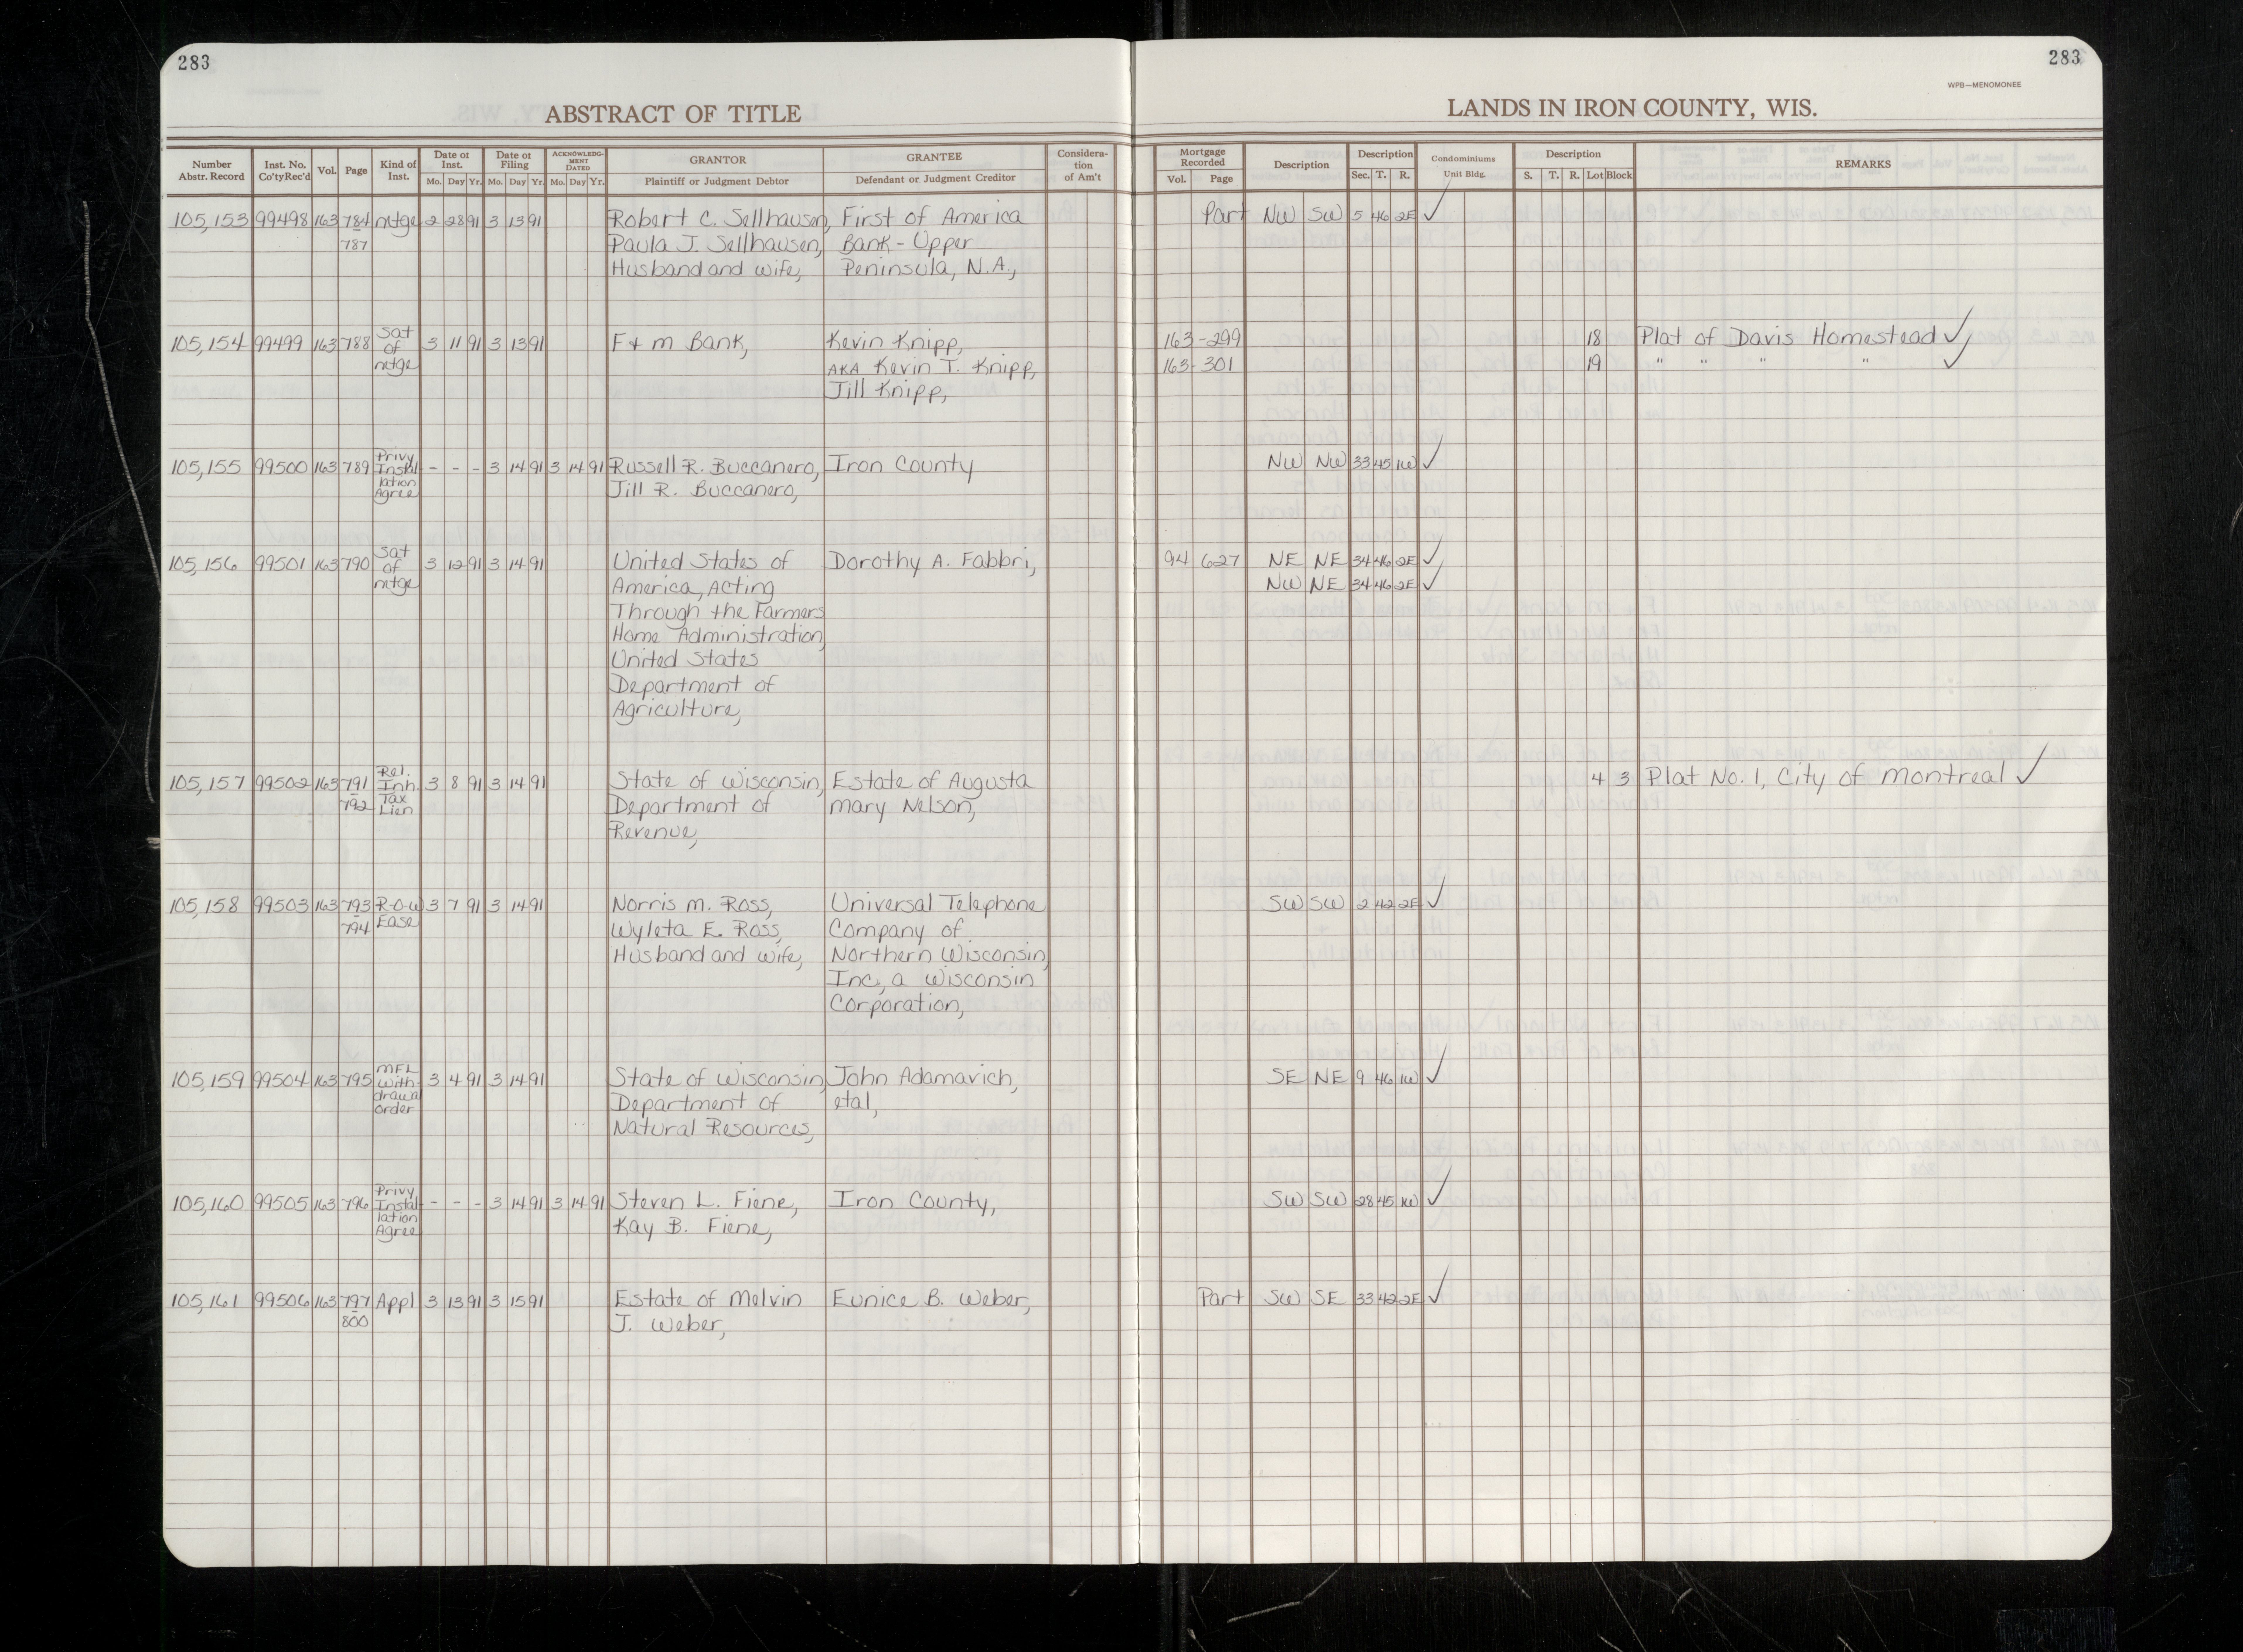 283
283
WPB—MENOMONEE
ABSTRACT OF TITLE
LANDS IN IRON COUNTY, WIS.
Number Abstr. Record | Inst. No. Co'ty Rec'd | Vol. | Page | Kind of Inst. | Date of Inst. Mo. Day Yr. | Date of Filing Mo. Day Yr. | ACKNOWLEDG-MENT DATED Mo. Day Yr. | GRANTOR Plaintiff or Judgment Debtor | GRANTEE Defendant or Judgment Creditor | Considera-tion of Am't | Mortgage Recorded Vol. Page | Description | Description Sec. T. R. | Condominiums Unit Bldg. | Description S. T. R. Lot Block | REMARKS
105,153 99498 163 784 mtge 2 28 91 3 13 91 Robert C. Sellhausen, First of America Part NW SW 5 46 2E ✓
787 Paula J. Sellhausen, Bank - Upper
Husband and wife, Peninsula, N.A.,
105,154 99499 163 788 Sat of mtge 3 11 91 3 13 91 F & m Bank, Kevin Knipp, 163-299 18 Plat of Davis Homestead ✓
AKA Kevin T. Knipp, 163-301 19 " " " " ✓
Jill Knipp,
105,155 99500 163 789 Privy Instal-lation Agree - - - 3 14 91 3 14 91 Russell R. Buccanero, Iron County NW NW 33 45 1W ✓
Jill R. Buccanero,
105,156 99501 163 790 Sat of mtge 3 12 91 3 14 91 United States of Dorothy A. Fabbri, 94 627 NE NE 34 46 2E ✓
America, Acting NW NE 34 46 2E ✓
Through the Farmers
Home Administration,
United States
Department of
Agriculture,
105,157 99502 163 791-792 Rel. Inh. Tax Lien 3 8 91 3 14 91 State of Wisconsin, Estate of Augusta 4 3 Plat No. 1, City of Montreal ✓
Department of mary Nelson,
Revenue,
105,158 99503 163 793-794 R-O-W Ease 3 7 91 3 14 91 Norris m. Ross, Universal Telephone SW SW 2 42 2E ✓
Wyleta E. Ross, Company of
Husband and wife, Northern Wisconsin,
Inc., a Wisconsin
Corporation,
105,159 99504 163 795 MFL With-drawal order 3 4 91 3 14 91 State of Wisconsin, John Adamavich, SE NE 9 46 1W ✓
Department of etal,
Natural Resources,
105,160 99505 163 796 Privy Instal-lation Agree - - - 3 14 91 3 14 91 Steven L. Fiene, Iron County, SW SW 28 45 1W ✓
Kay B. Fiene,
105,161 99506 163 797-800 Appl 3 13 91 3 15 91 Estate of Melvin Eunice B. Weber, Part SW SE 33 42 2E ✓
J. Weber,